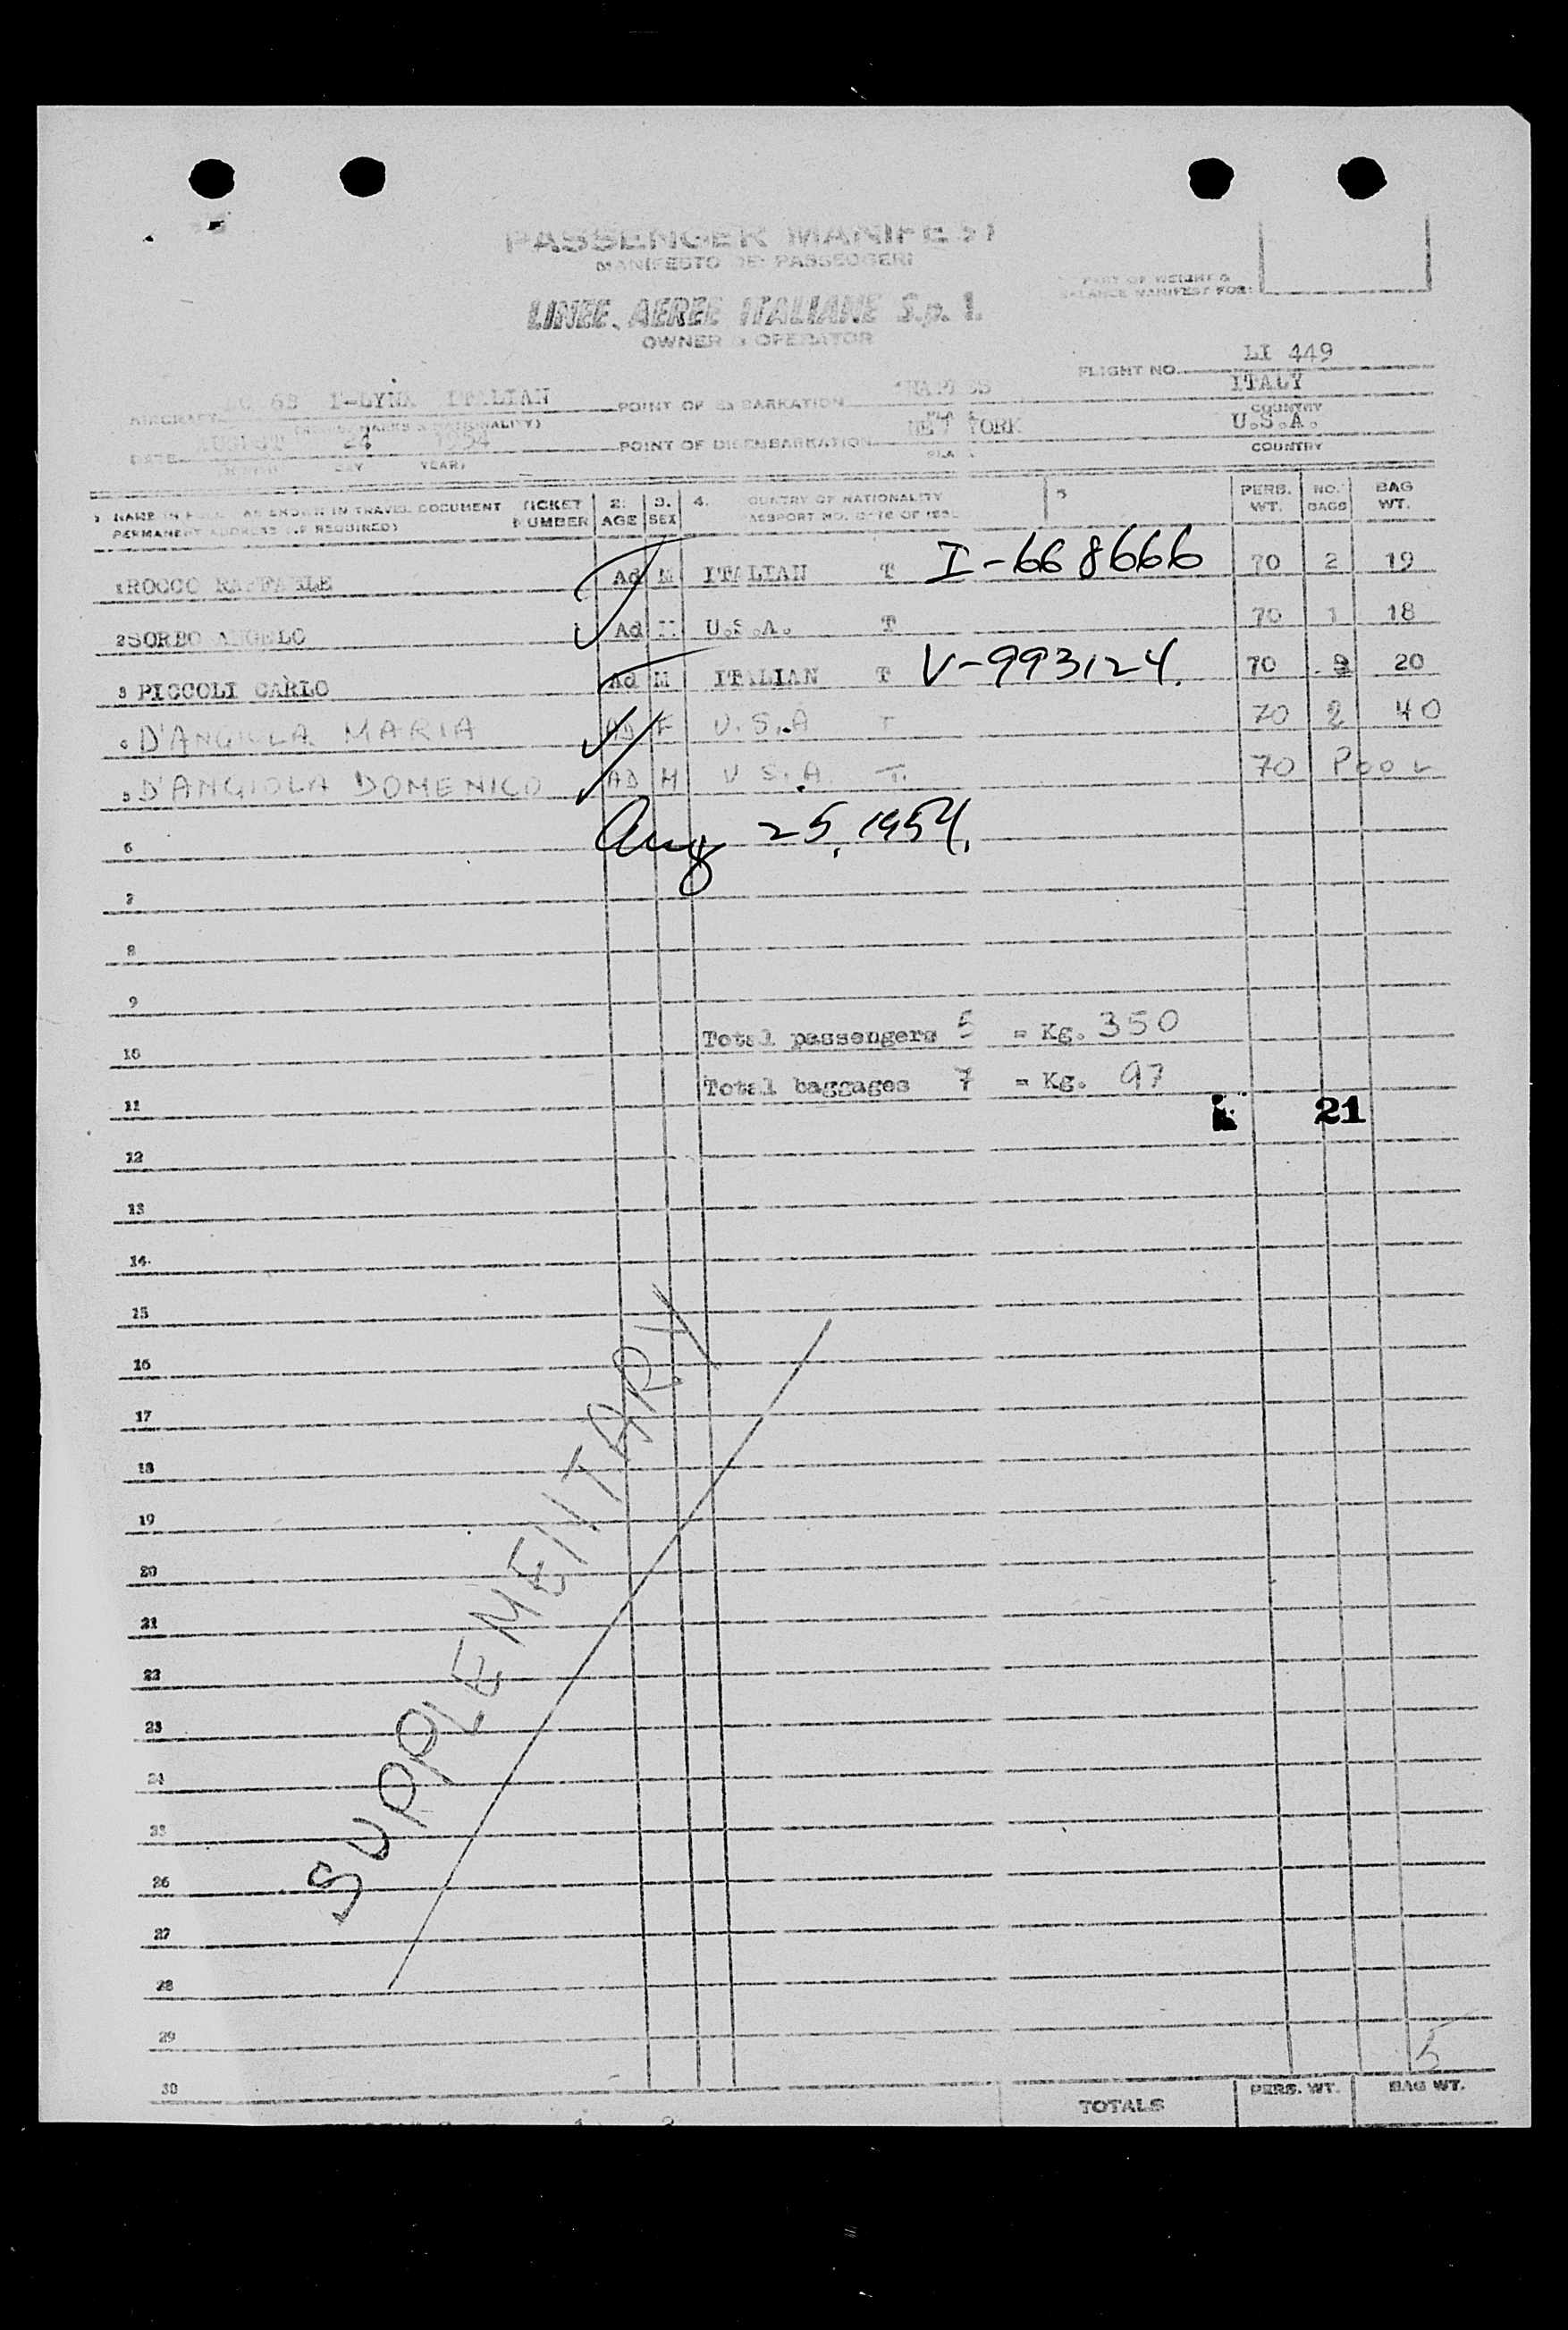 PASSENGER MANIFEST
MANIFESTO DEI PASSEGGERI
PART OF WEIGHT &
BALANCE MANIFEST FOR:
LINEE AEREE ITALIANE S.p.
OWNER & OPERATOR
FLIGHT NO. LI 449
AIRCRAFT DC 6B ITALIAN POINT OF EMBARKATION ITALY
(MARKS & NATIONALITY) COUNTRY
DATE AUGUST 24 1954 POINT OF DISEMBARKATION NEW YORK U.S.A.
DAY YEAR) COUNTRY
NAME IN FULL AS SHOWN IN TRAVEL DOCUMENT TICKET 2. 3. 4. COUNTRY OF NATIONALITY 5 PERS. NO. BAG
PERMANENT ADDRESS (IF REQUIRED) NUMBER AGE SEX PASSPORT NO. WT. BAGS WT.
1 ROCCO RAFFAELE Ad M ITALIAN T I-668666 70 2 19
2 SORBO ANGELO Ad M U.S.A. T 70 1 18
3 PICCOLI CARLO Ad M ITALIAN T V-993124. 70 2 20
D'ANGIOLA MARIA AD F U.S.A T 70 2 40
5 D'ANGIOLA DOMENICO AD M U S.A. T. 70 POOL
6 Aug 25, 1954.
7
8
9
10 Total passengers 5 = Kg. 350
11 Total baggages 7 = Kg. 97
21
12
13
14
15
16
17
18
19
20
21
22
23
24
25
26
27
28
29
SUPPLEMENTARY
5
30
TOTALS PERS. WT. BAG WT.